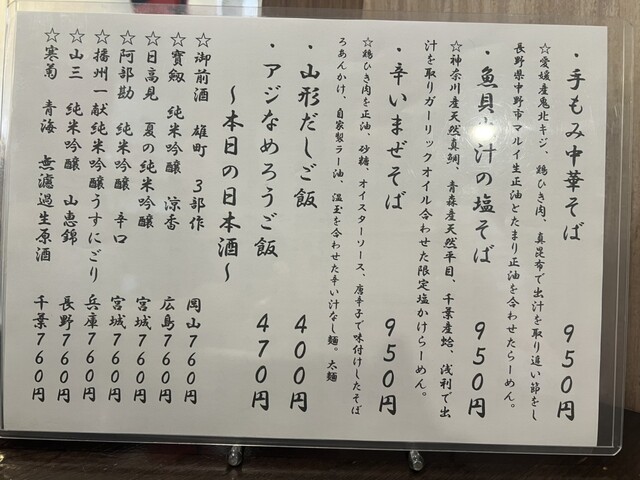 ・手もみ中華そば 950円
☆愛媛産鬼北キジ、鶏ひき肉、真昆布で出汁を取り追い節をし
長野県中野市マルイ生正油とたまり正油を合わせたらーめん。
・魚貝出汁の塩そば 950円
☆神奈川産天然真鯛、青森産天然平目、千葉産蛤、浅利で出
汁を取りガーリックオイル合わせた限定塩かけらーめん。
・辛いまぜそば 950円
☆鶏ひき肉を正油、砂糖、オイスターソース、唐辛子で味付けしたそぼ
ろあんかけ、自家製ラー油、温玉を合わせた辛い汁なし麺。太麺
・山形だしご飯 400円
・アジなめろうご飯 470円
～本日の日本酒～
☆御前酒 雄町 3部作 岡山760円
☆寶剱 純米吟醸 涼香 広島760円
☆日高見 夏の純米吟醸 宮城760円
☆阿部勘 純米吟醸 辛口 宮城760円
☆播州一献純米吟醸うすにごり 兵庫760円
☆山三 純米吟醸 山恵錦 長野760円
☆寒菊 青海 無濾過生原酒 千葉760円